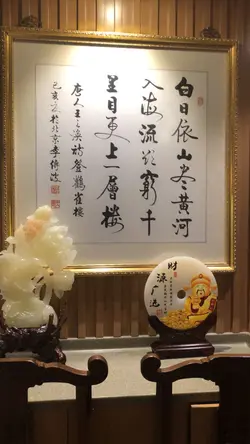 白日依山尽黄河
入海流欲窮千
里目更上一層楼
唐人王之涣詩登鸛雀楼
己亥 於北京李
财
源广进